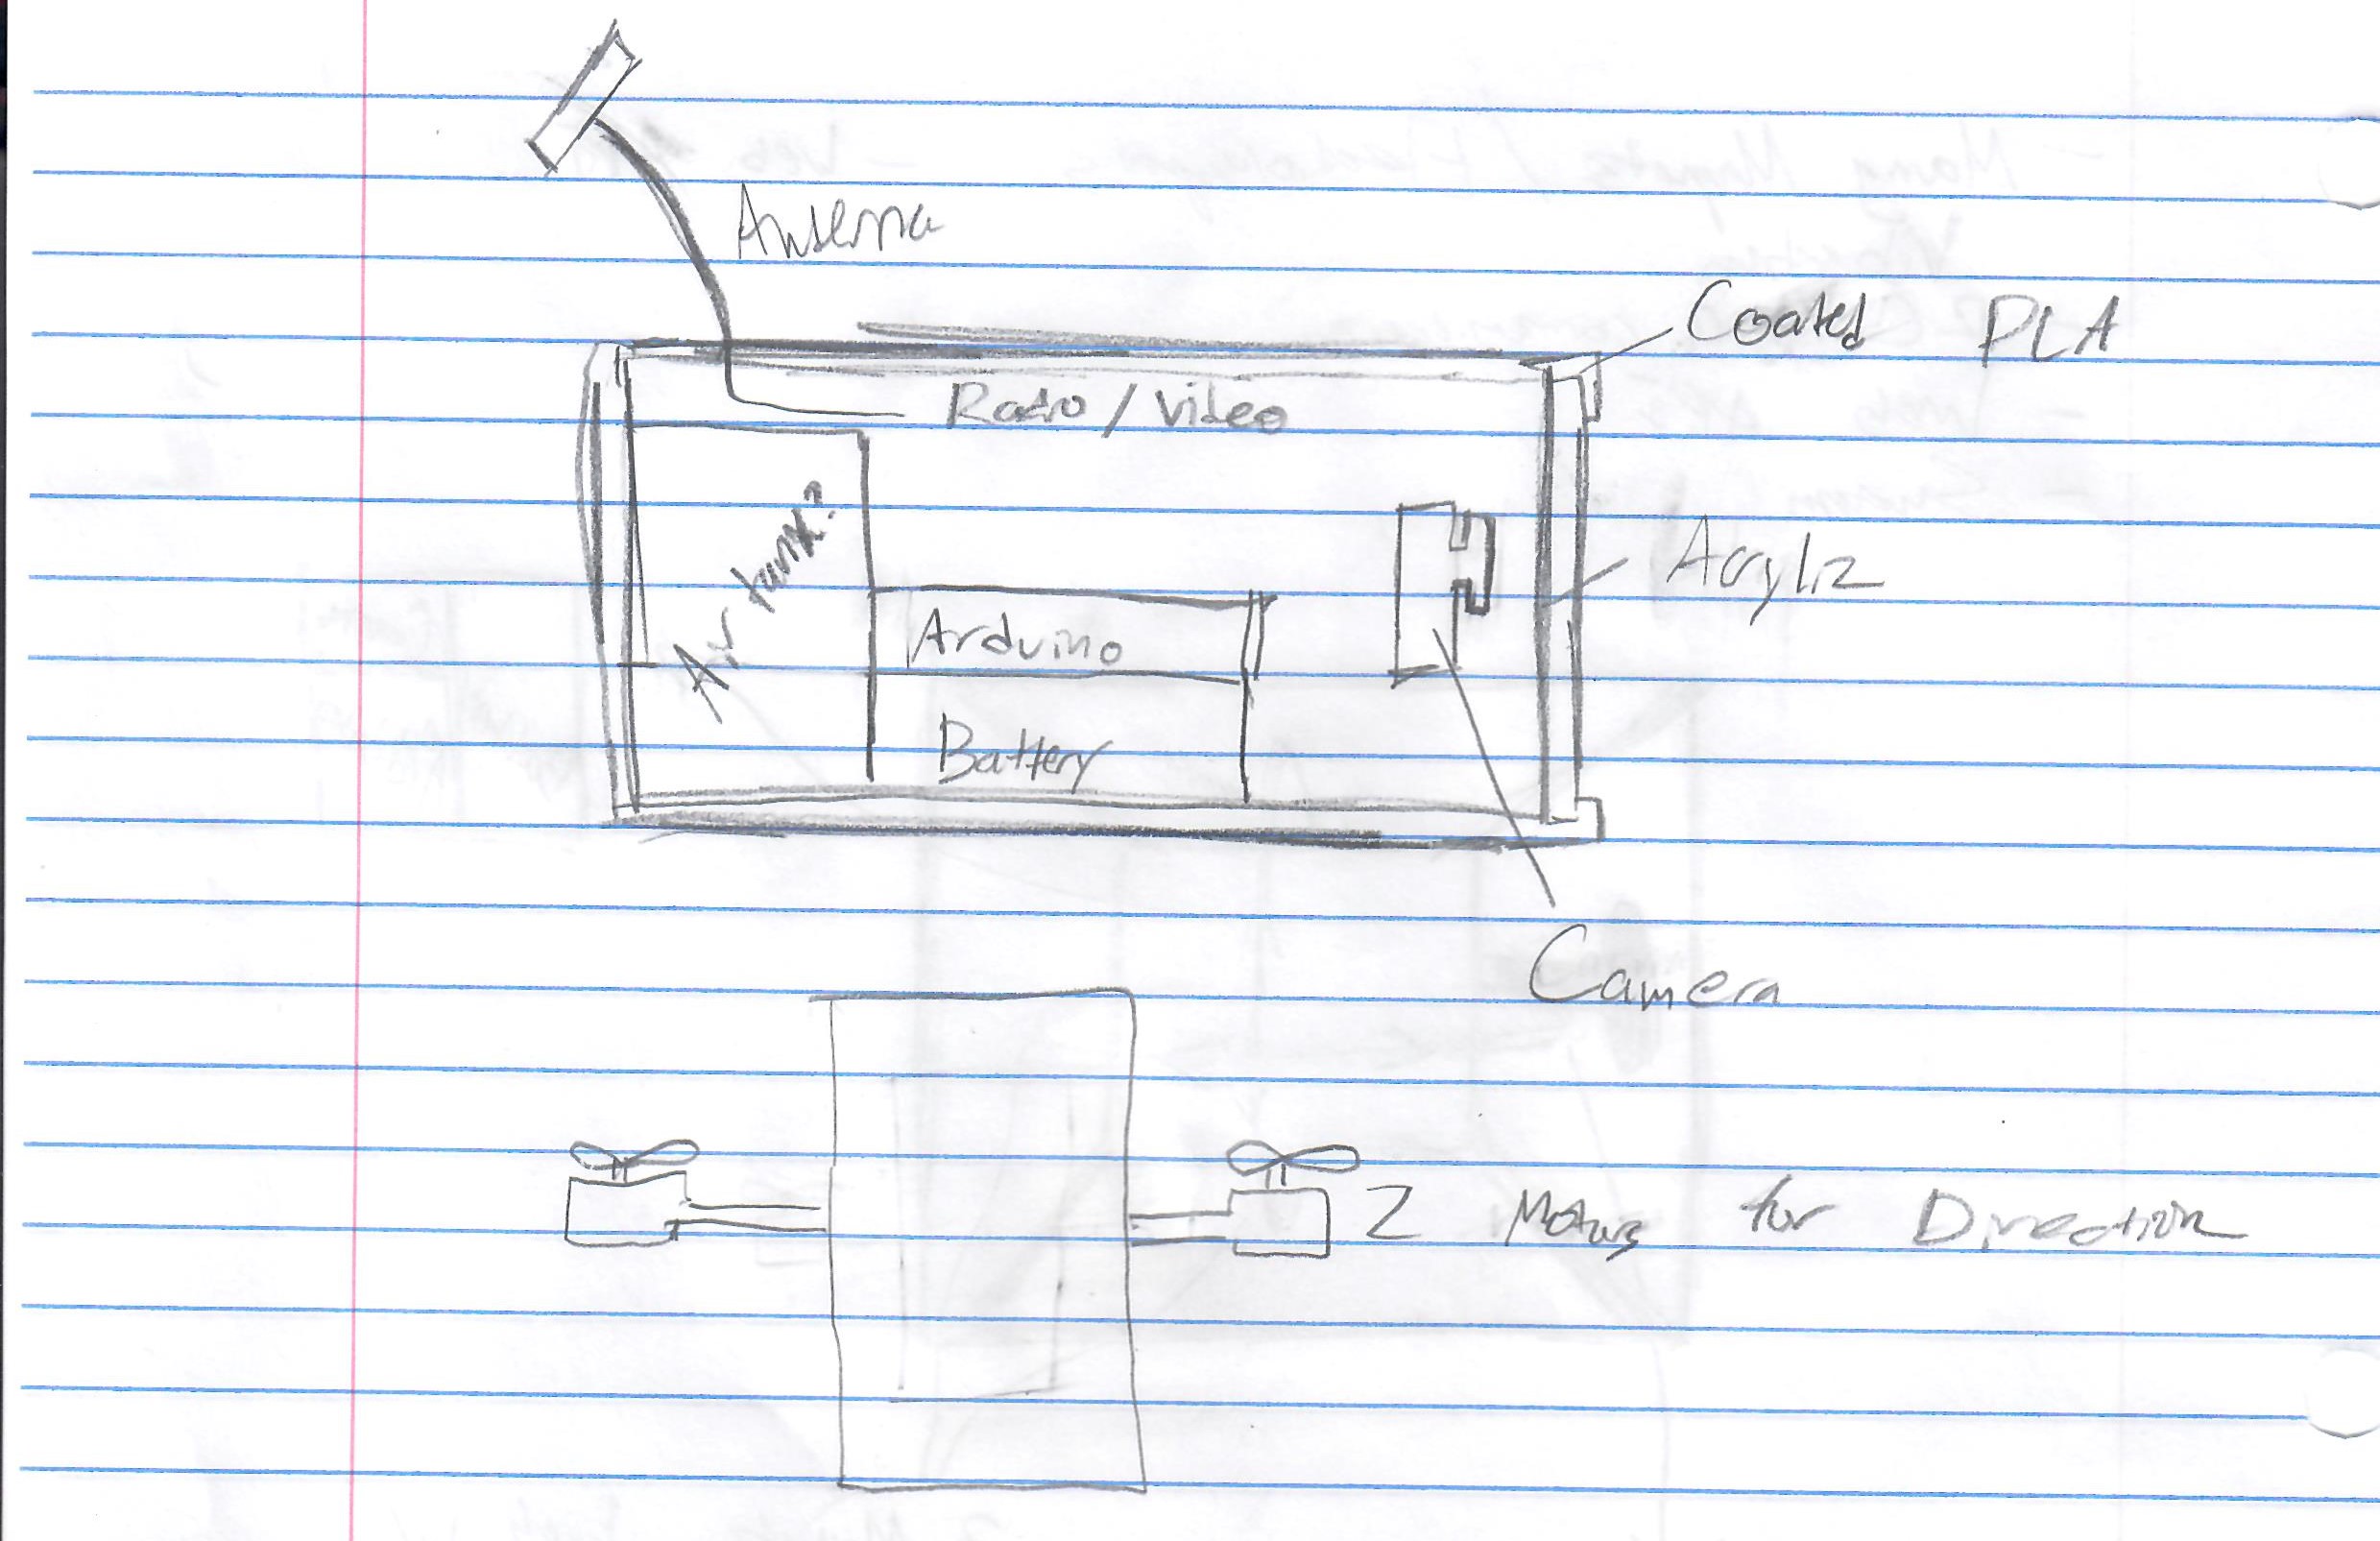 Antenna
Coated PLA
Radio / Video
Air tank?
Acrylic
Arduino
Battery
Camera
2 Motors for Direction